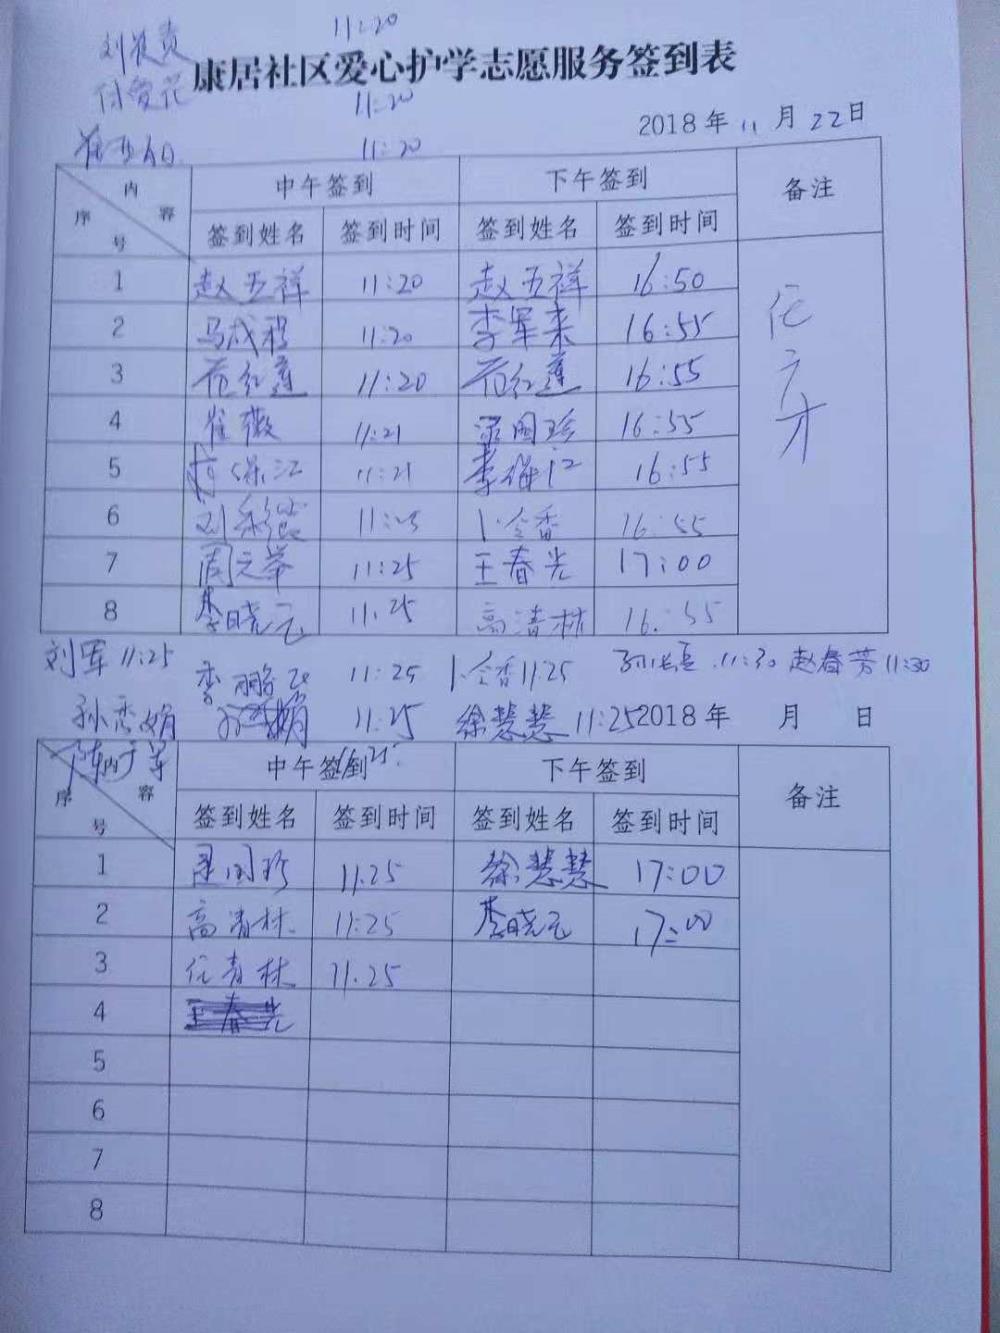 11:20
康居社区爱心护学志愿服务签到表
11:20
2018 年 11 月 22 日
11:20
内容 序号 中午签到 下午签到 备注
签到姓名 签到时间 签到姓名 签到时间
1 赵五祥 11:20 赵五祥 16:50
2 马成程 11:20 李军来 16:55
3 范红莲 11:20 范红莲 16:55
4 崔薇 11:21 梁国珍 16:55
5 11:21 李保江 16:55
6 卜令香 16:55
7 周元举 11:25 王春光 17:00
8 李晓元 11.25 高清林 16:55
刘军 11:25 李鹏飞 11:25 卜令香 11:25 11:30 赵春芳 11:30
孙恋娟 11:25 徐慧慧 11:25 2018 年 月 日
11:25
内容 序号 中午签到 下午签到 备注
签到姓名 签到时间 签到姓名 签到时间
1 梁国珍 11:25 徐慧慧 17:00
2 高清林 11:25 李晓元 17:00
3 任青林 11.25
4 王春光
5
6
7
8